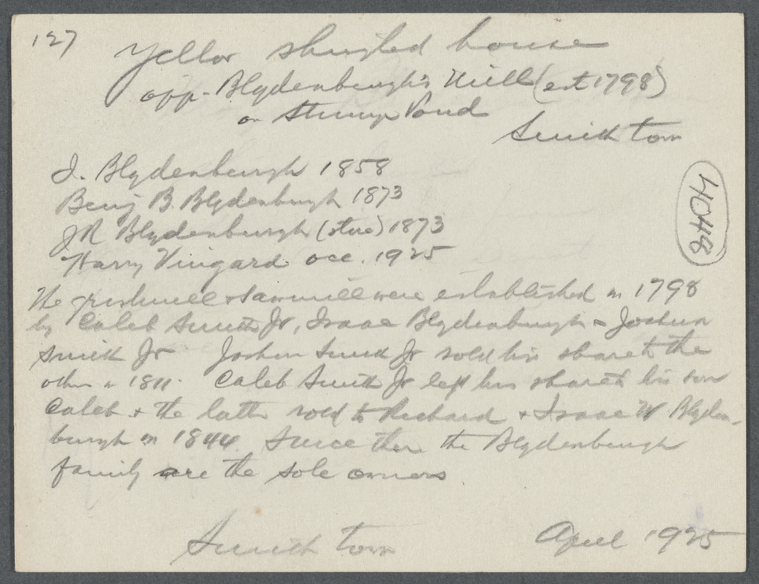 127
Yellow shingled house
opp- Blydenburgh's Mill (est 1798)
on Stump Pond
Smithtown
I. Blydenburgh 1858
Benj B. Blydenburgh 1873
JR Blydenburgh (store) 1873
Harry Vingard occ. 1925
4048
The gristmill & sawmill were established in 1798
by Caleb Smith Jr, Isaac Blydenburgh & Joshua
Smith Jr Joshua Smith Jr sold his share to the
other in 1811. Caleb Smith Jr left his share to his son
Caleb & the latter sold to Richard & Isaac W Blyden-
burgh in 1844. Since then the Blydenburgh
family are the sole owners.
Smithtown April 1925